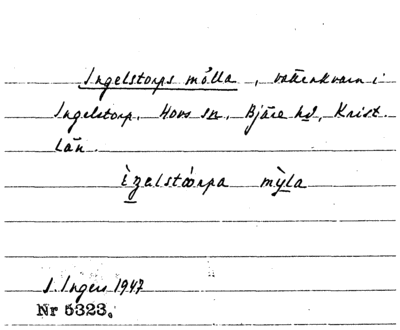 Ingelstorps mölla, vattenkvarn i
Ingelstorp, Hovs sn, Bjäre hd, Krist.
län.
mỳla
I. Ingers 1947
Nr 5323.